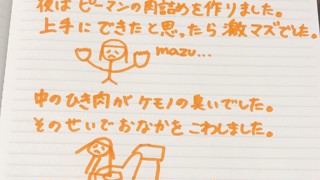 夜はピーマンの肉詰めを作りました。
上手にできたと思ったら激マズでした。
mazu...
中のひき肉がケモノの臭いでした。
そのせいでおなかをこわしました。